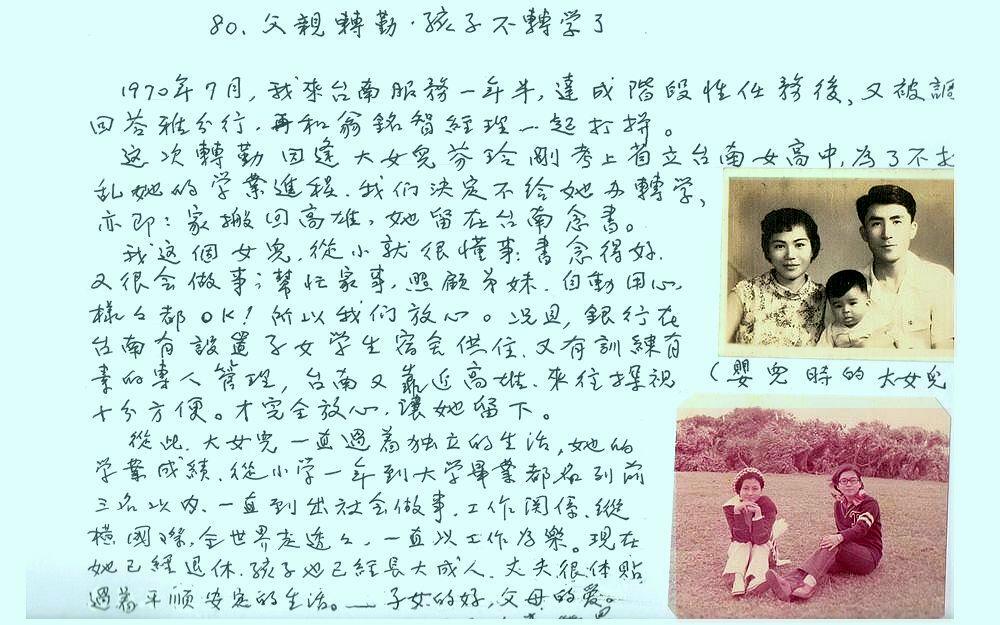 80. 父親轉勤·孩子不轉学了
1970年7月, 我來台南服務一年半, 達成階段性任務後、又被調
回苓雅分行. 再和翁銘智經理一起打拼。
这次轉勤因逢大女兒芬玲剛考上省立台南女高中, 為了不打
乱她的学業進程. 我们決定不给她办轉学、
亦即: 家搬回高雄, 她留在台南念書。
我这個女兒, 從小就很懂事: 書念得好.
又很会做事; 幫忙家事, 照顧弟妹. 自動用心,
樣々都OK! 所以我们放心。况且, 銀行在
台南有設置子女学生宿舍供住. 又有訓練有
素的專人管理, 台南又靠近高雄. 來往探視
十分方便。才完全放心. 讓她留下。
(嬰兒時的大女兒
從此. 大女兒一直過着独立的生活, 她的
学業成績. 從小学一年到大学畢業都名列前
三名以内. 一直到出社会做事. 工作関係. 縱
橫國際, 全世界走透々, 一直以工作為樂。現在
她已經退休. 孩子也已經長大成人. 丈夫很体貼
過着平順安定的生活。— 子女的好, 父母的愛。